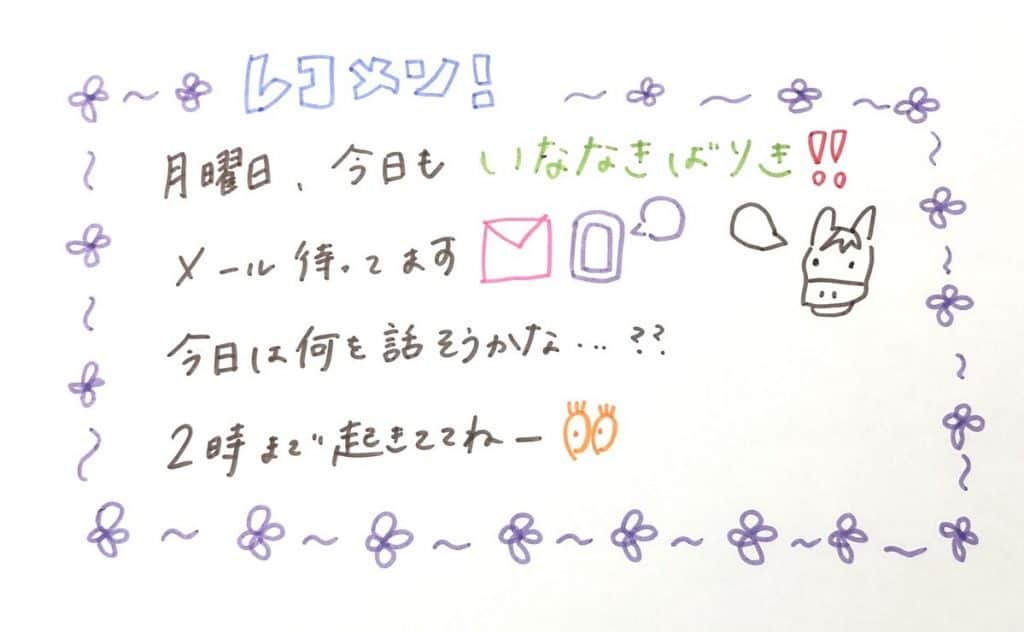 レコメン!
月曜日、今日も いななきばりき!!
メール待ってます
今日は何を話そうかな...??
2時まで起きててねー